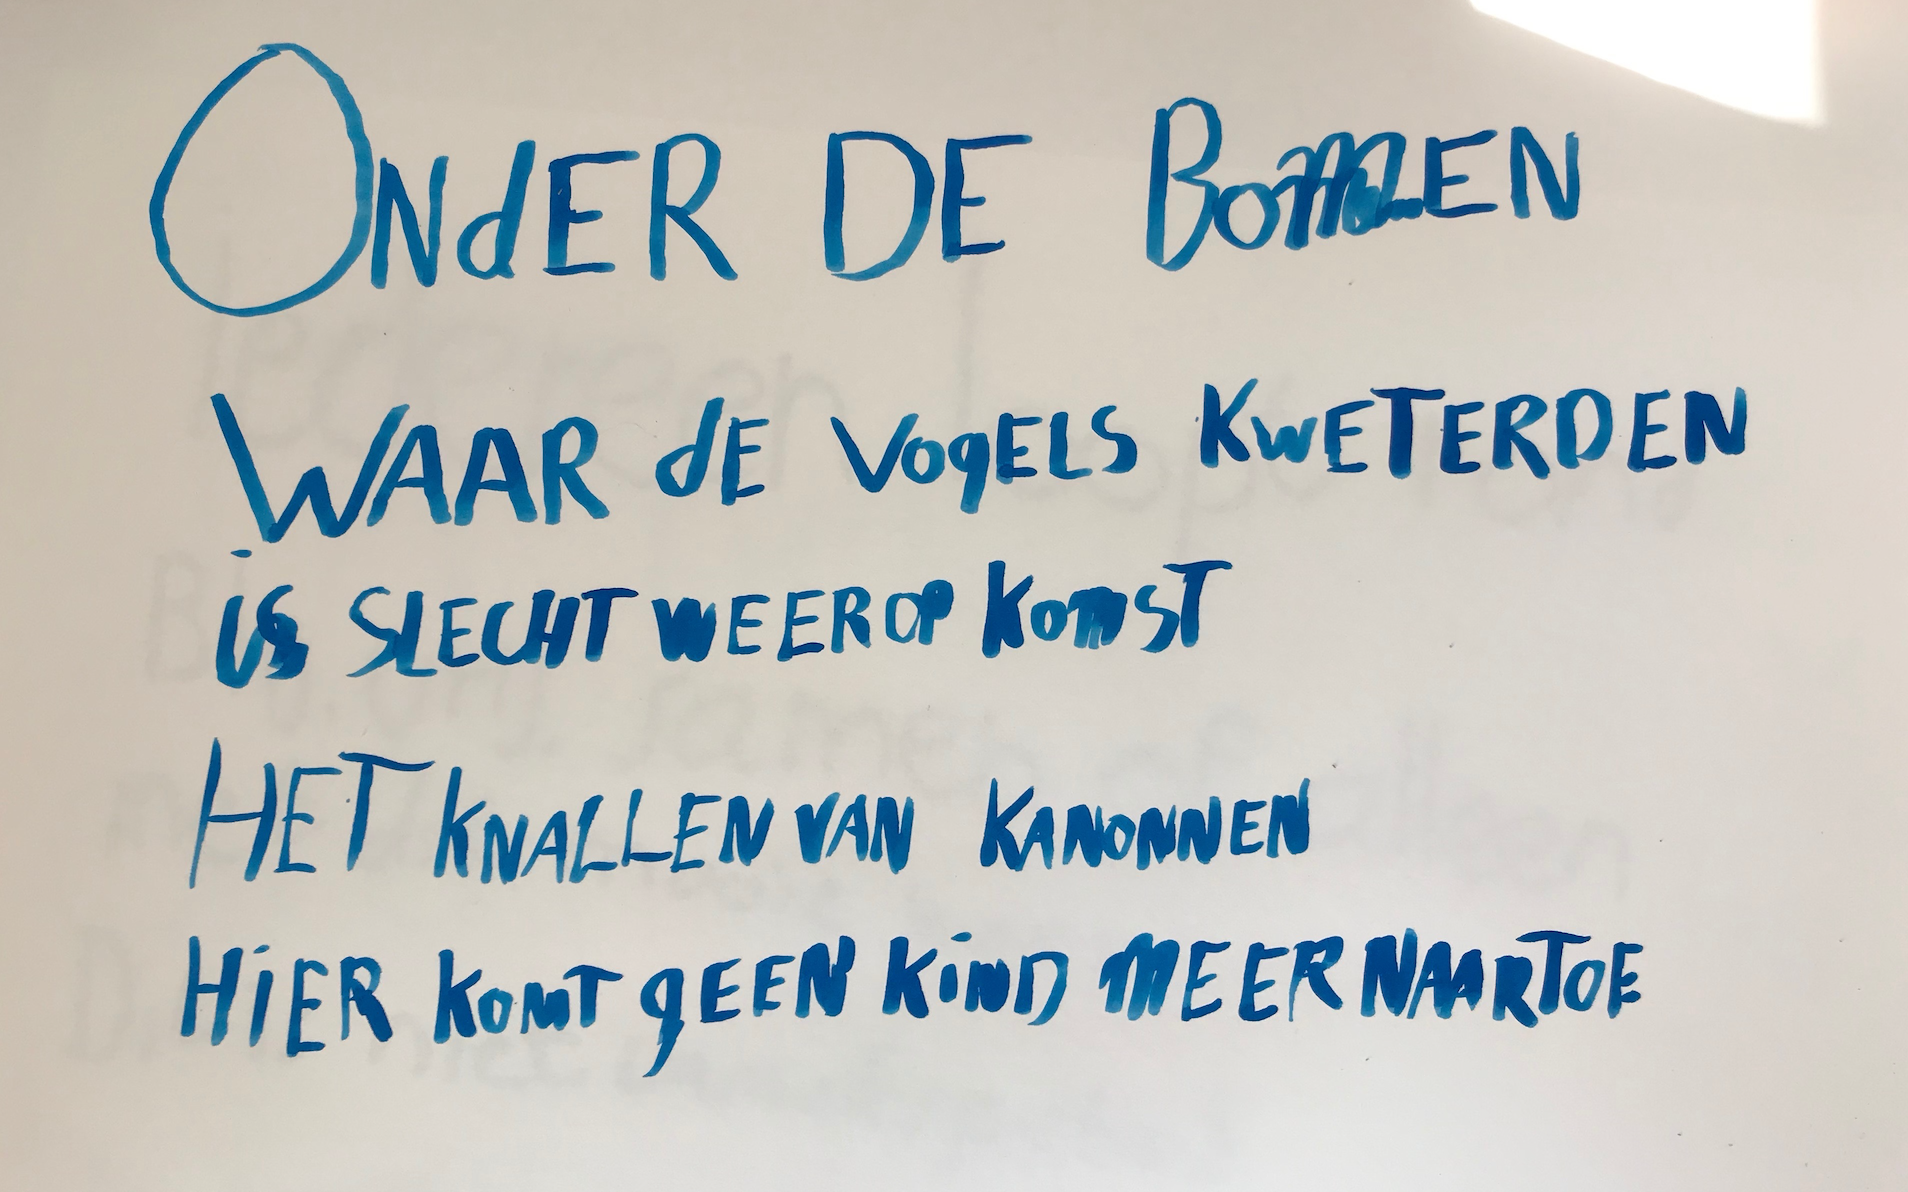 ONdER DE BOMMEN
WAAR dE VOgELS KWETERDEN
iS SLECHT WEER OP KOMST
HET KNALLEN VAN KANONNEN
HiER KOMT gEEN KiND MEER NAARTOE